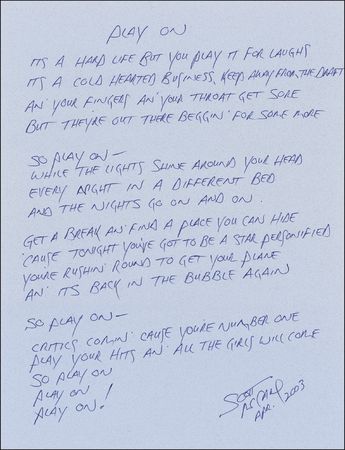 PLAY ON
ITS A HARD LIFE BUT YOU PLAY IT FOR LAUGHS
ITS A COLD HEARTED BUSINESS, KEEP AWAY FROM THE DRAFT
AN' YOUR FINGERS AN' YOUR THROAT GET SORE
BUT THEYRE OUT THERE BEGGIN' FOR SOME MORE
SO PLAY ON —
WHILE THE LIGHTS SHINE AROUND YOUR HEAD
EVERY NIGHT IN A DIFFERENT BED
AND THE NIGHTS GO ON AND ON.
GET A BREAK AN' FIND A PLACE YOU CAN HIDE
'CAUSE TONIGHT YOU'VE GOT TO BE A STAR PERSONIFIED
YOU'RE RUSHIN' ROUND TO GET YOUR PLANE
AN' ITS BACK IN THE BUBBLE AGAIN
SO PLAY ON —
CRITICS COMIN' CAUSE YOURE NUMBER ONE
PLAY YOUR HITS AN' ALL THE GIRLS WILL COME
SO PLAY ON
PLAY ON
PLAY ON!
SCOTT
APR. 2003